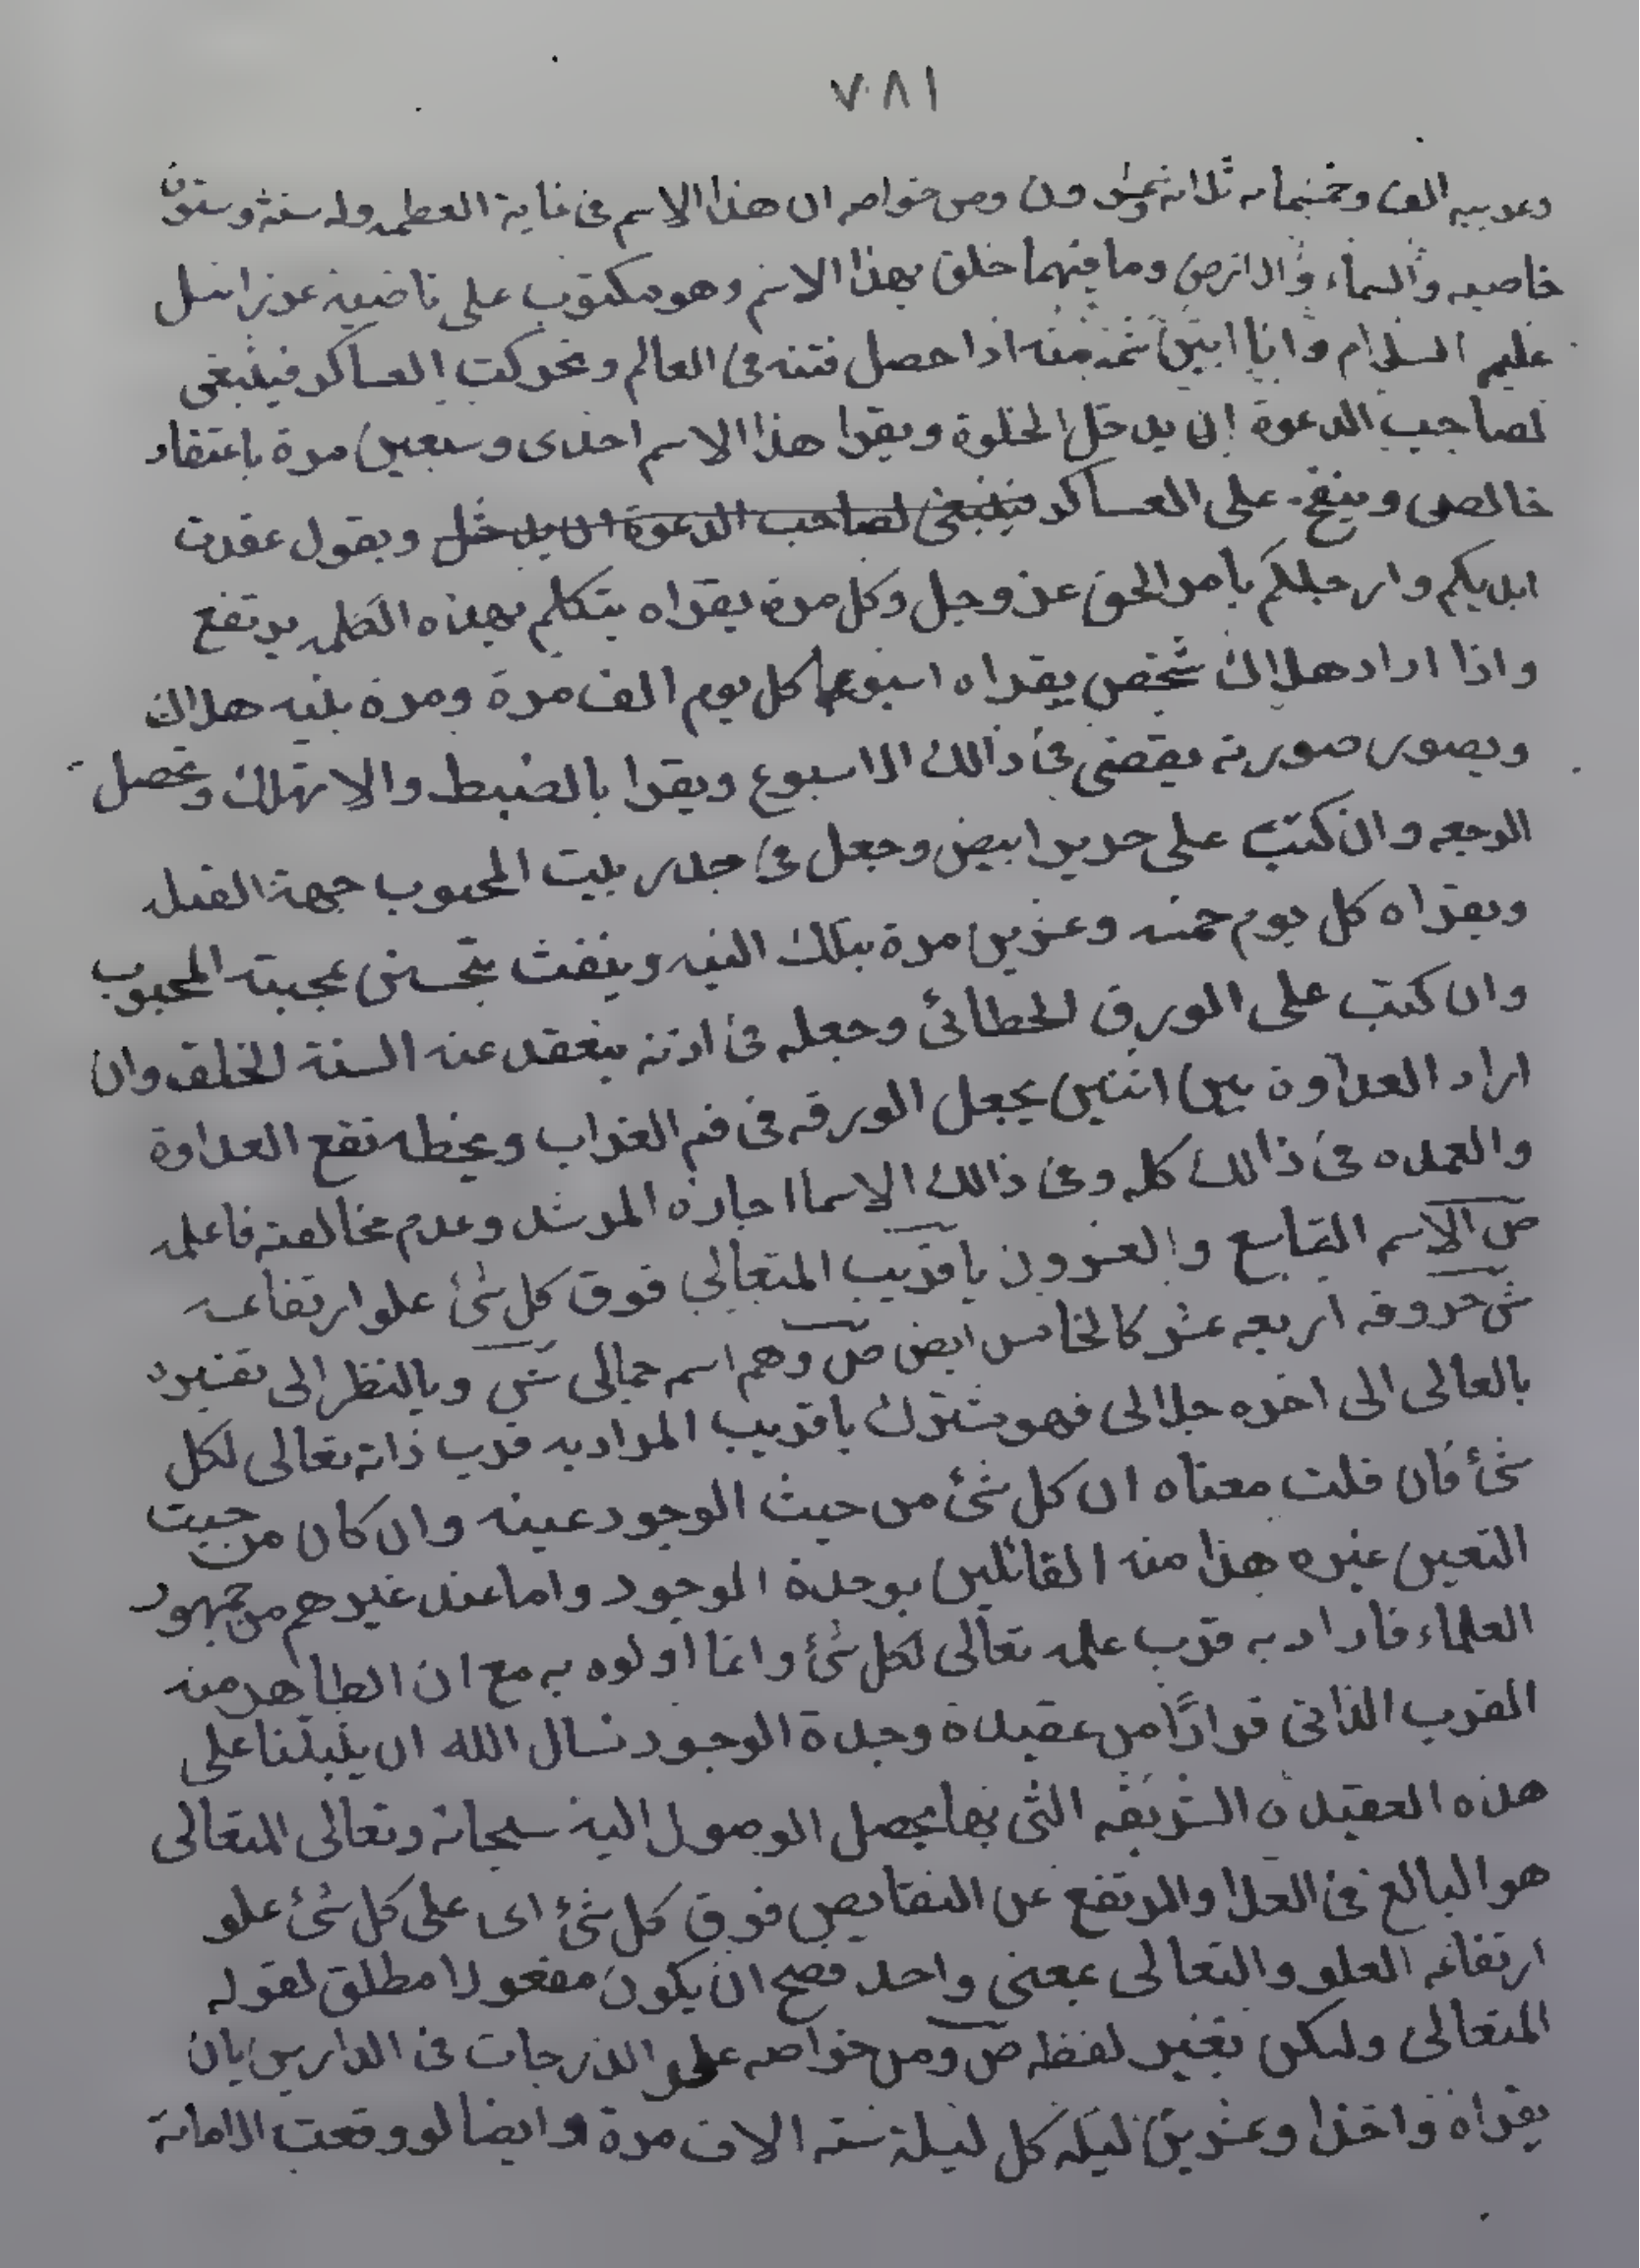 ٧٠٨١
الف وخمسمائه ثلاثه عشرون ومن خواصه ان هذا الاسم فى غاية العظمه وله ستة وستون
خاصيه والسماء والارض وما فيهما خلق بهذا الاسم وهو مكتوب على ناصيه عزرائيل
عليه السلام وانا ابين ثمه منه اذا حصل فتنه فى العالم وتحركت العساكر فينبغى
لصاحب الدعوة ان يدخل الخلوة ويقرا هذا الاسم احدى وسبعين مرة باعتقاد
خالص وينفخ على العساكر فينبغى لصاحب الدعوة ان يدخل ويقول عقدت
ايديكم وارجلكم بامر الحق عز وجل وكل مرة يقراه يتكلم بهذه الكلمه يرتفع
واذا اراد هلاك شخص يقراه اسبوعا كل يوم الف مرة ومرة بنيه هلاك
ويصور صورته يقضى فى ذالك الاسبوع ويقرا بالضبط والانهلاك وتحصل
الرجعه وان كتب على حرير ابيض وجعل فى جدر بيت المحبوب جهة القبله
ويقراه كل يوم خمسه وعشرين مرة بتلك النيه وينفث بمحبته المحبوب
وان كتب على الورق الخطائى وجعله فى اذنه ينعقد عنه السنة الخلق وان
اراد العداوة بين اثنين يجعل الورقه فى فم الغراب ويخطه تقع العداوة
والعمده فى ذالك كله وفى ذالك الاسما اجازه المرشد وعدم مخالفته فاعلمه
ص الاسم التاسع والعشرون يا قريب المتعالى فوق كل شئ علو ارتفاعه
ش حروفه اربعه عشر كالخامس ايض ص وهم اسم جمالى ش وبالنظر الى تقنيده
بالعالى الى اخره جلالى فهو مشترك يا قريب المراد به قرب ذاته تعالى لكل
شئ فان قلت معناه ان كل شئ من حيث الوجود عينه وان كان من حيث
التعين غيره هذا منه القائلين بوحدة الوجود واما عند غيرهم من جمهور
العلماء فاراد به قرب علمه تعالى لكل شئ وانما اولوه به مع ان الظاهر منه
القرب الذاتى فرارًا من عقيدة وحدة الوجود نسال الله ان يثبتنا على
هذه العقيدة الشريفه التى بها يحصل الوصول اليه سبحانه وتعالى المتعالى
هو البالغ فى العلا والمرتفع عن النقايص فوق كل شئ اى على كل شئ علو
ارتفاعه العلو والتعالى بمعنى واحد فصح ان يكون مفعولا مطلق لقوله
المتعالى ولكن بغير لفظه ص ومن خواصه علو الدرجات فى الدارين بان
يقراه واحدا وعشرين ليله كل ليلة سته الاف مرة وايضا لو وقعت الامانة